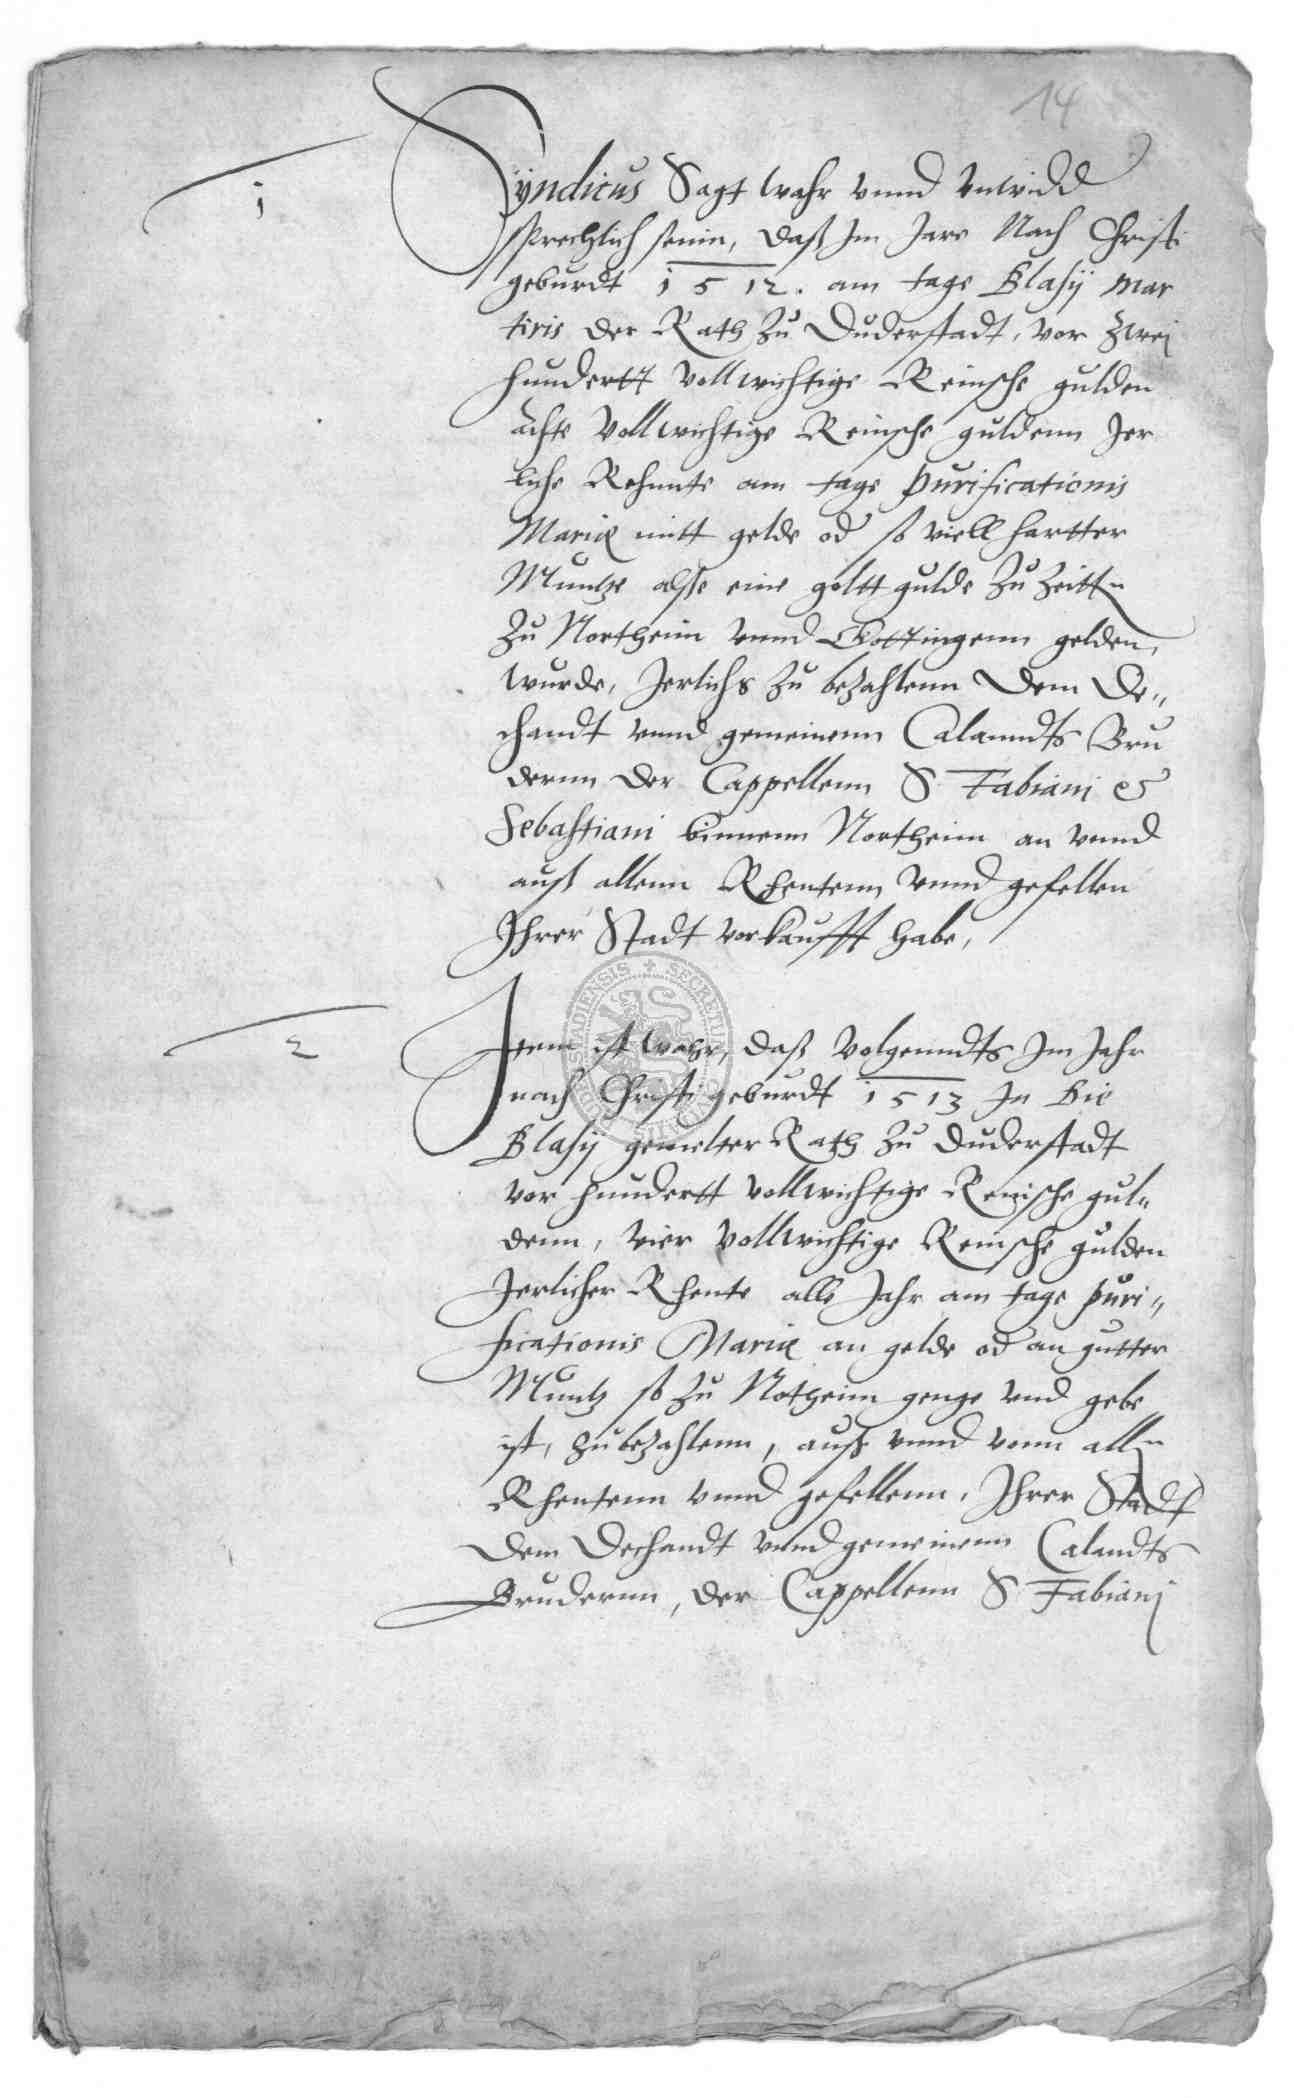 14
1
Syndicus Sagt wahr vnnd vnwidd
sprechlich seinn, daß Im Jare Nach Christi
geburdt 1512. am tage Blasij Mar
tiris der Rath zu Duderstadt, vor zwei
hundertt vollwichtige Reinsche gulden
achte vollwichtige Reinsche guldenn Jer
liche Rehnnte am tage Purificationis
Mariæ mitt gelde od so viell hartter
Muntze alsse eine goltt gulde zu zeittn
zu Northeim vnnd Gottingenn gelden,
wurde, Jerlichs zu bezahlenn dem De„
chandt vnnd gemeinenn Calanndts Bru
dernn der Cappellenn S. Fabiani &
Sebastiani binnenn Northeim an vnnd
auß allenn Rhentenn vnnd gefellen
Ihrer Stadt vorkaufft habe,
2
Item ist wahr, daß volgenndts Im Jahr
nach Christi geburdt 1513 In die
Blasij gemelter Rath zu Duderstadt
vor hundertt vollwichtige Reinsche gul„
denn, vier vollwichtige Reinsche gulden
Jerlicher Rhente alle Jahr am tage Puri„
ficationis Mariæ an gelde od an gutter
Muntz so zu Notheim genge vnd gebe
ist, zubezahlenn, auß vnnd vonn alln
Rhentenn vnnd gefellenn, Ihrer Stadt
dem Dechandt vnnd gemeinenn Calandts
Brudernn, der Cappellenn S. Fabiani